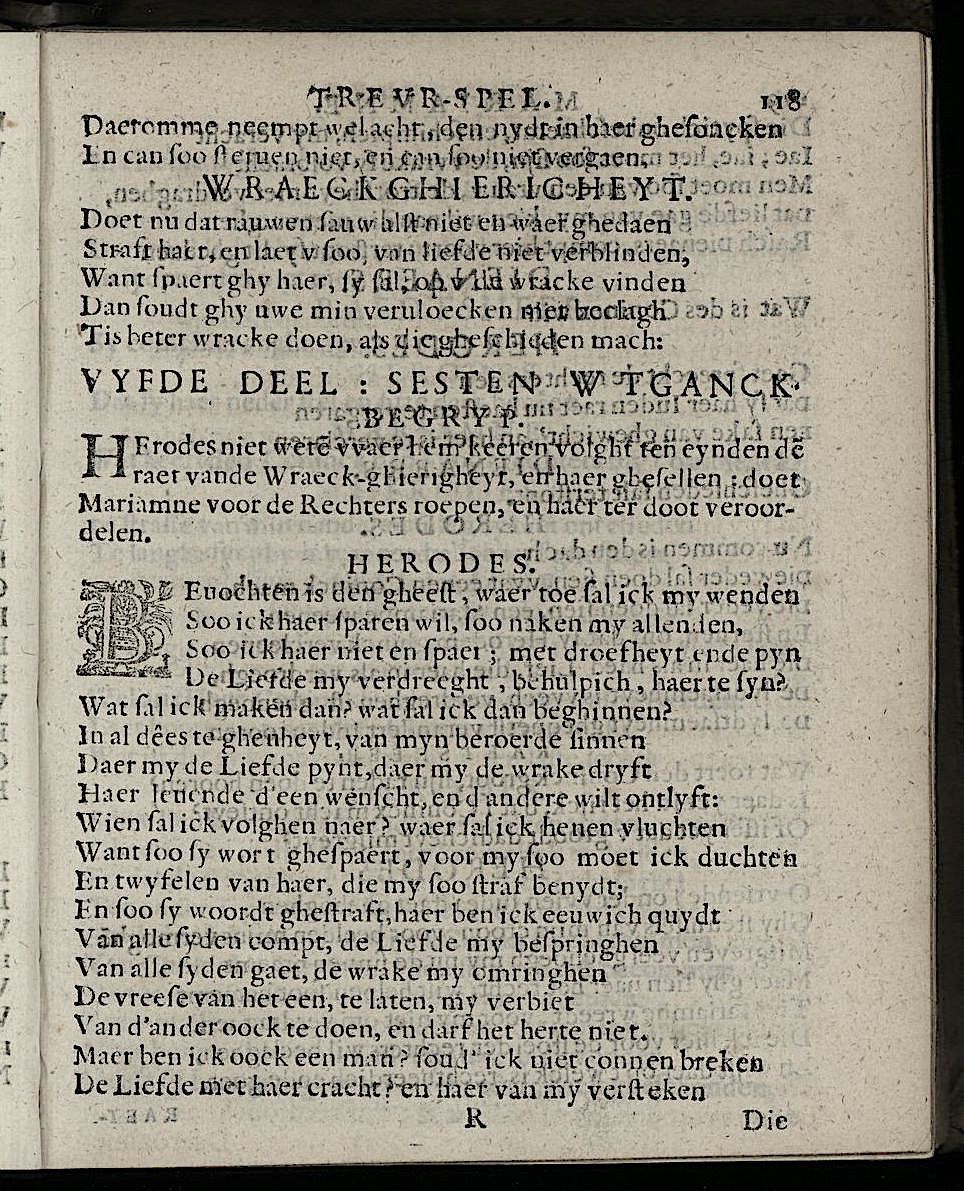 TREVR-SPEL. 118
Daeromme neempt wel acht, den nydt in haer ghesoncken
En can soo steruen niet, en can soo niet vergaen.
WRAECKGHIERIGHEYT.
Doet nu dat rauwen sauw alst niet en waer ghedaen
Straft haer, en laet v soo, van liefde niet verblinden,
Want spaert ghy haer, sy sal, op v wracke vinden
Dan soudt ghy uwe min veruloecken met beclagh
'Tis beter wracke doen, als die gheschieden mach:
VYFDE DEEL : SESTEN WTGANCK.
BEGRYP.
HErodes niet wete vvaer hem keeren volght ten eynden dē
raet vande Wraeck-ghierigheyt, en haer ghesellen : doet
Mariamne voor de Rechters roepen, en haer ter doot veroor-
delen.
HERODES.
BEuochten is den gheest, waer toe sal ick my wenden
Soo ick haer sparen wil, soo naken my allenden,
Soo ick haer niet en spaer ; met droefheyt ende pyn
De Liefde my verdreeght, behulpich, haer te syn?
Wat sal ick maken dan? wat sal ick dan beghinnen?
In al dees teghenheyt, van myn beroerde sinnen
Daer my de Liefde pynt, daer my de wrake dryft
Haer leuende d'een wenscht, en d'andere wilt ontlyft:
Wien sal ick volghen naer? waer sal ick henen vluchten
Want soo sy wort ghespaert, voor my soo moet ick duchten
En twyfelen van haer, die my soo straf benydt;
En soo sy woordt ghestraft, haer ben ick eeuwich quydt
Van alle syden compt, de Liefde my bespringhen
Van alle syden gaet, de wrake my omringhen
De vreese van het een, te laten, my verbiet
Van d'ander oock te doen, en darf het herte niet.
Maer ben ick oock een man? soud' ick niet connen breken
De Liefde met haer cracht? en haer van my versteken
R Die